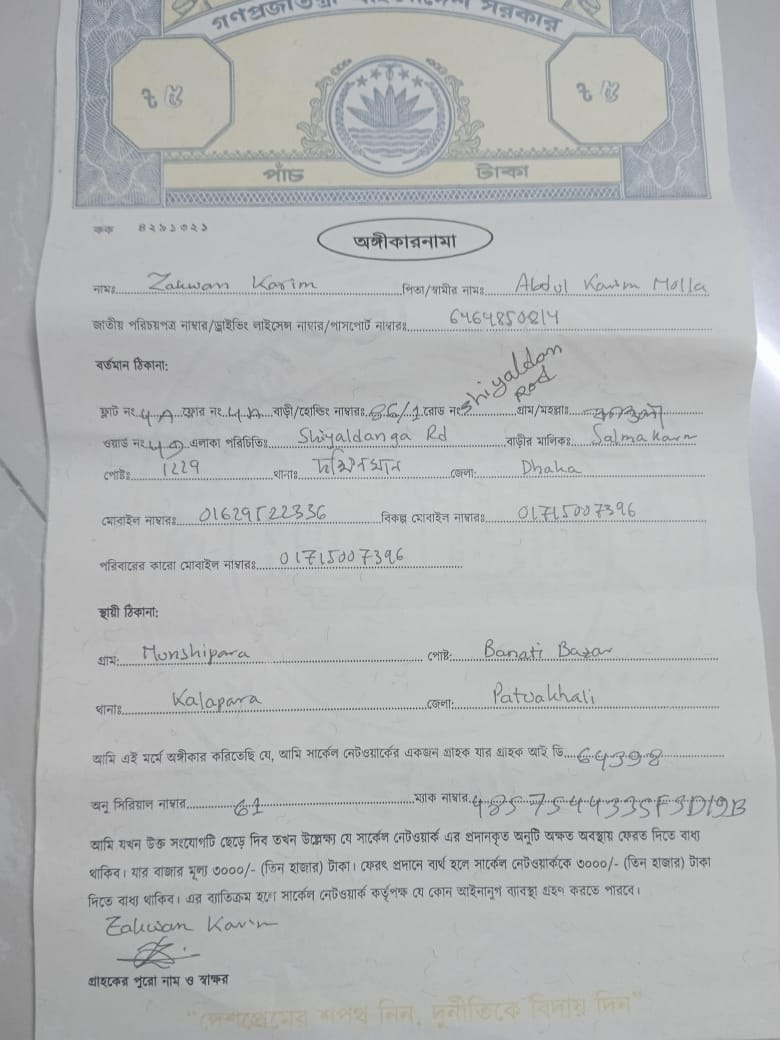 গণপ্রজাতন্ত্রী বাংলাদেশ সরকার
৳ ৫ ৳ ৫
পাঁচ টাকা
কক ৪২৯১৩২১
অঙ্গীকারনামা
নামঃ Zakwan Karim পিতা/স্বামীর নামঃ Abdul Karim Molla
জাতীয় পরিচয়পত্র নাম্বার/ড্রাইভিং লাইসেন্স নাম্বার/পাসপোর্ট নাম্বারঃ 6464850814
বর্তমান ঠিকানা:
ফ্লাট নং 4A ফ্লোর নং 4A বাড়ী/হোল্ডিং নাম্বারঃ 86/1 রোড নং Shiyaldan Rod গ্রাম/মহল্লাঃ
ওয়ার্ড নং 49 এলাকা পরিচিতিঃ Shiyaldanga Rd বাড়ীর মালিকঃ Salma Karim
পোষ্টঃ 1229 থানাঃ জেলা: Dhaka
মোবাইল নাম্বারঃ 01629522336 বিকল্প মোবাইল নাম্বারঃ 01715007396
পরিবারের কারো মোবাইল নাম্বারঃ 01715007396
স্থায়ী ঠিকানা:
গ্রাম: Munshipara পোষ্ট: Banati Bazar
থানাঃ Kalapara জেলা: Patuakhali
আমি এই মর্মে অঙ্গীকার করিতেছি যে, আমি সার্কেল নেটওয়ার্কের একজন গ্রাহক যার গ্রাহক আই ডি 64398
অনু সিরিয়াল নাম্বার 61 ম্যাক নাম্বার 4857544335F3D19B
আমি যখন উক্ত সংযোগটি ছেড়ে দিব তখন উল্লেখ্য যে সার্কেল নেটওয়ার্ক এর প্রদানকৃত অনুটি অক্ষত অবস্থায় ফেরত দিতে বাধ্য
থাকিব। যার বাজার মূল্য ৩০০০/- (তিন হাজার) টাকা। ফেরৎ প্রদানে ব্যর্থ হলে সার্কেল নেটওয়ার্ককে ৩০০০/- (তিন হাজার) টাকা
দিতে বাধ্য থাকিব। এর ব্যতিক্রম হলে সার্কেল নেটওয়ার্ক কর্তৃপক্ষ যে কোন আইনানুগ ব্যবস্থা গ্রহণ করতে পারবে।
Zakwan Karim
গ্রাহকের পুরো নাম ও স্বাক্ষর
"দেশপ্রেমের শপথ নিন, দুর্নীতিকে বিদায় দিন"